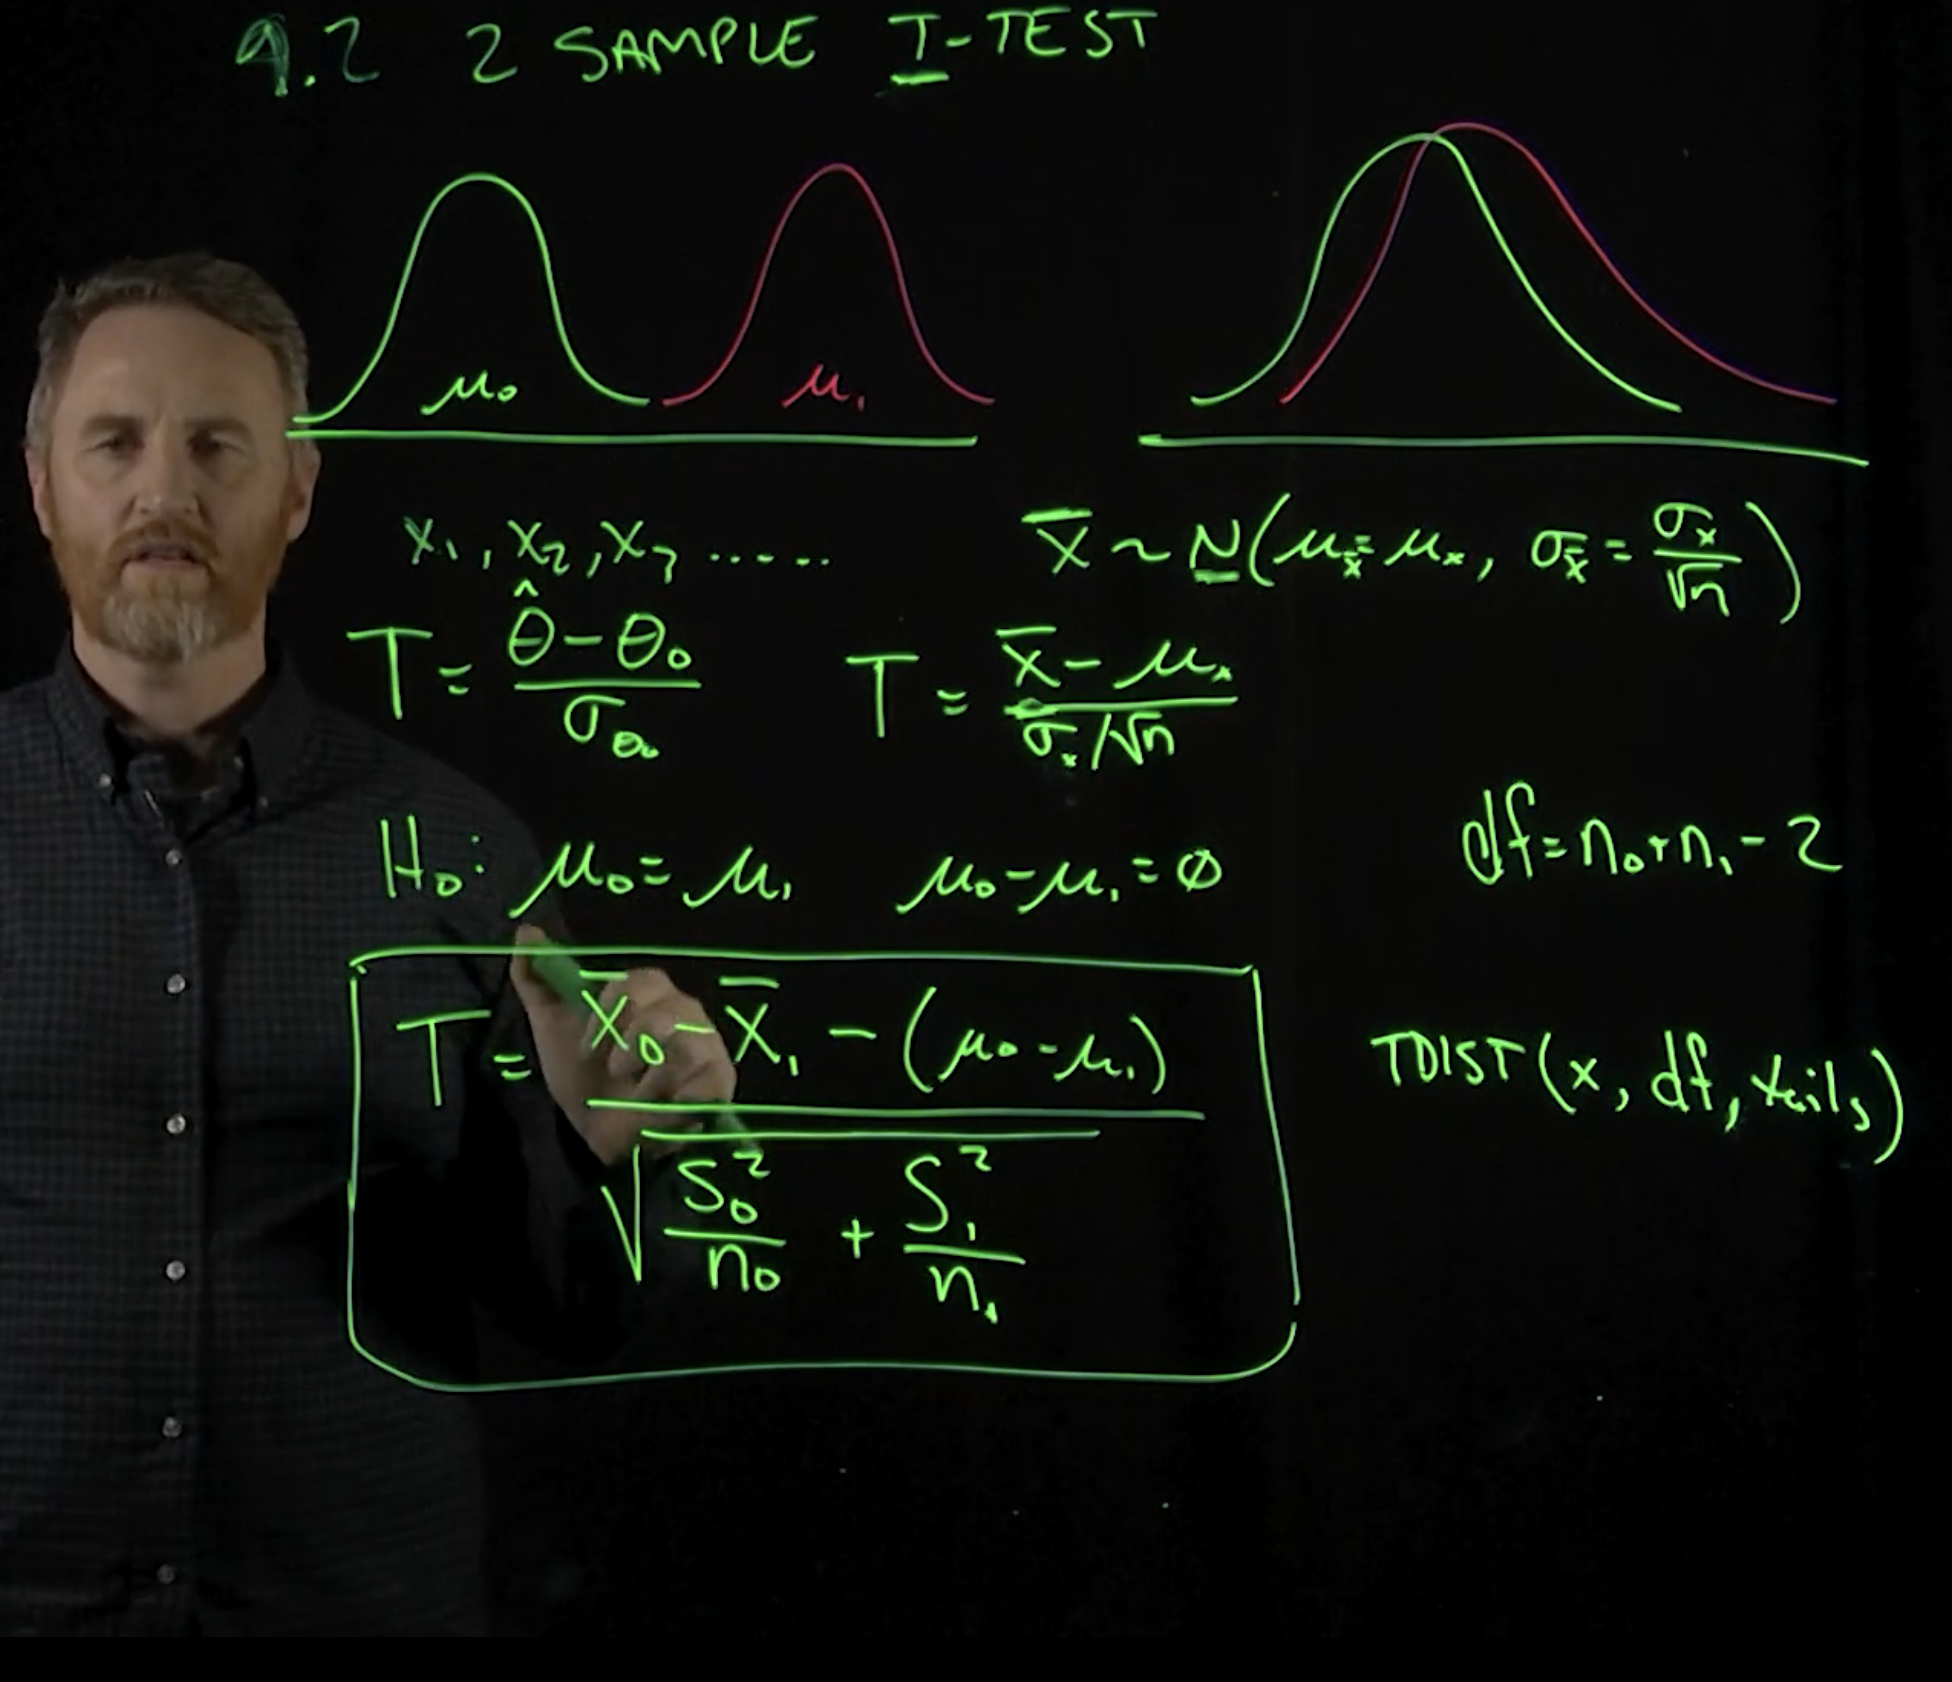 9.2 2 SAMPLE T-TEST
μ₀ μ₁
x₁, x₂, x₃ ......
X̄ ~ N(μ_x̄ = μₓ, σ_x̄ = σₓ/√n)
T = (θ̂ - θ₀)/σ_θ₀
T = (x̄ - μₓ)/(σₓ/√n)
H₀: μ₀ = μ₁ μ₀ - μ₁ = ∅
df = n₀ + n₁ - 2
T = (X̄₀ - X̄₁ - (μ₀ - μ₁))/√(S₀²/n₀ + S₁²/n₁)
TDIST(x, df, tails)